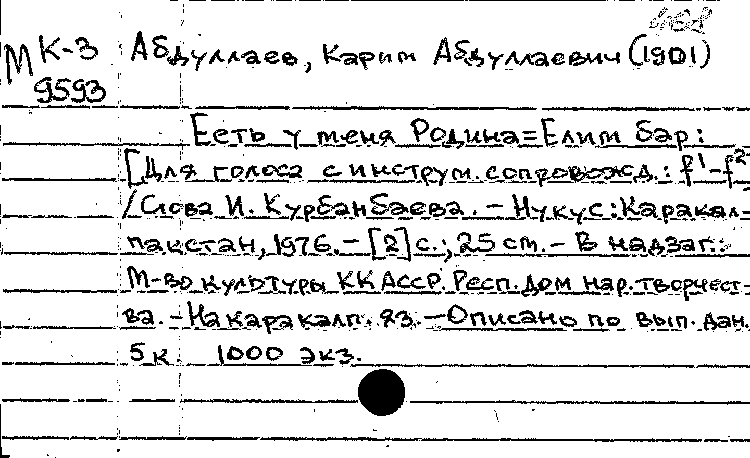 468
М К-3 Абдуллаев, Карим Абдуллаевич (1901)
9593
Есть у меня Родина=Елим бар:
[Для голоса с инструм. сопровожд.: f¹-f²
/Слова И. Курбанбаева. – Нукус: Каракал-
пакстан, 1976. – [2] с.; 25 см. – В надзаг.:
М-во культуры ККАССР. Респ. дом нар. творчест-
ва. – На каракалп. яз. – Описано по вып. дан.
5к 1000 экз.